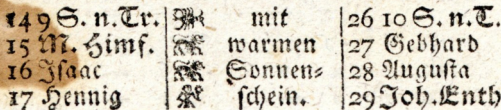 14 9 S. n. Tr. mit 26 10 S. n. T.
15 M. Himf. warmen 27 Gebhard
16 Isaac Sonnen= 28 Augusta
17 Hennig schein. 29 Joh. Enth